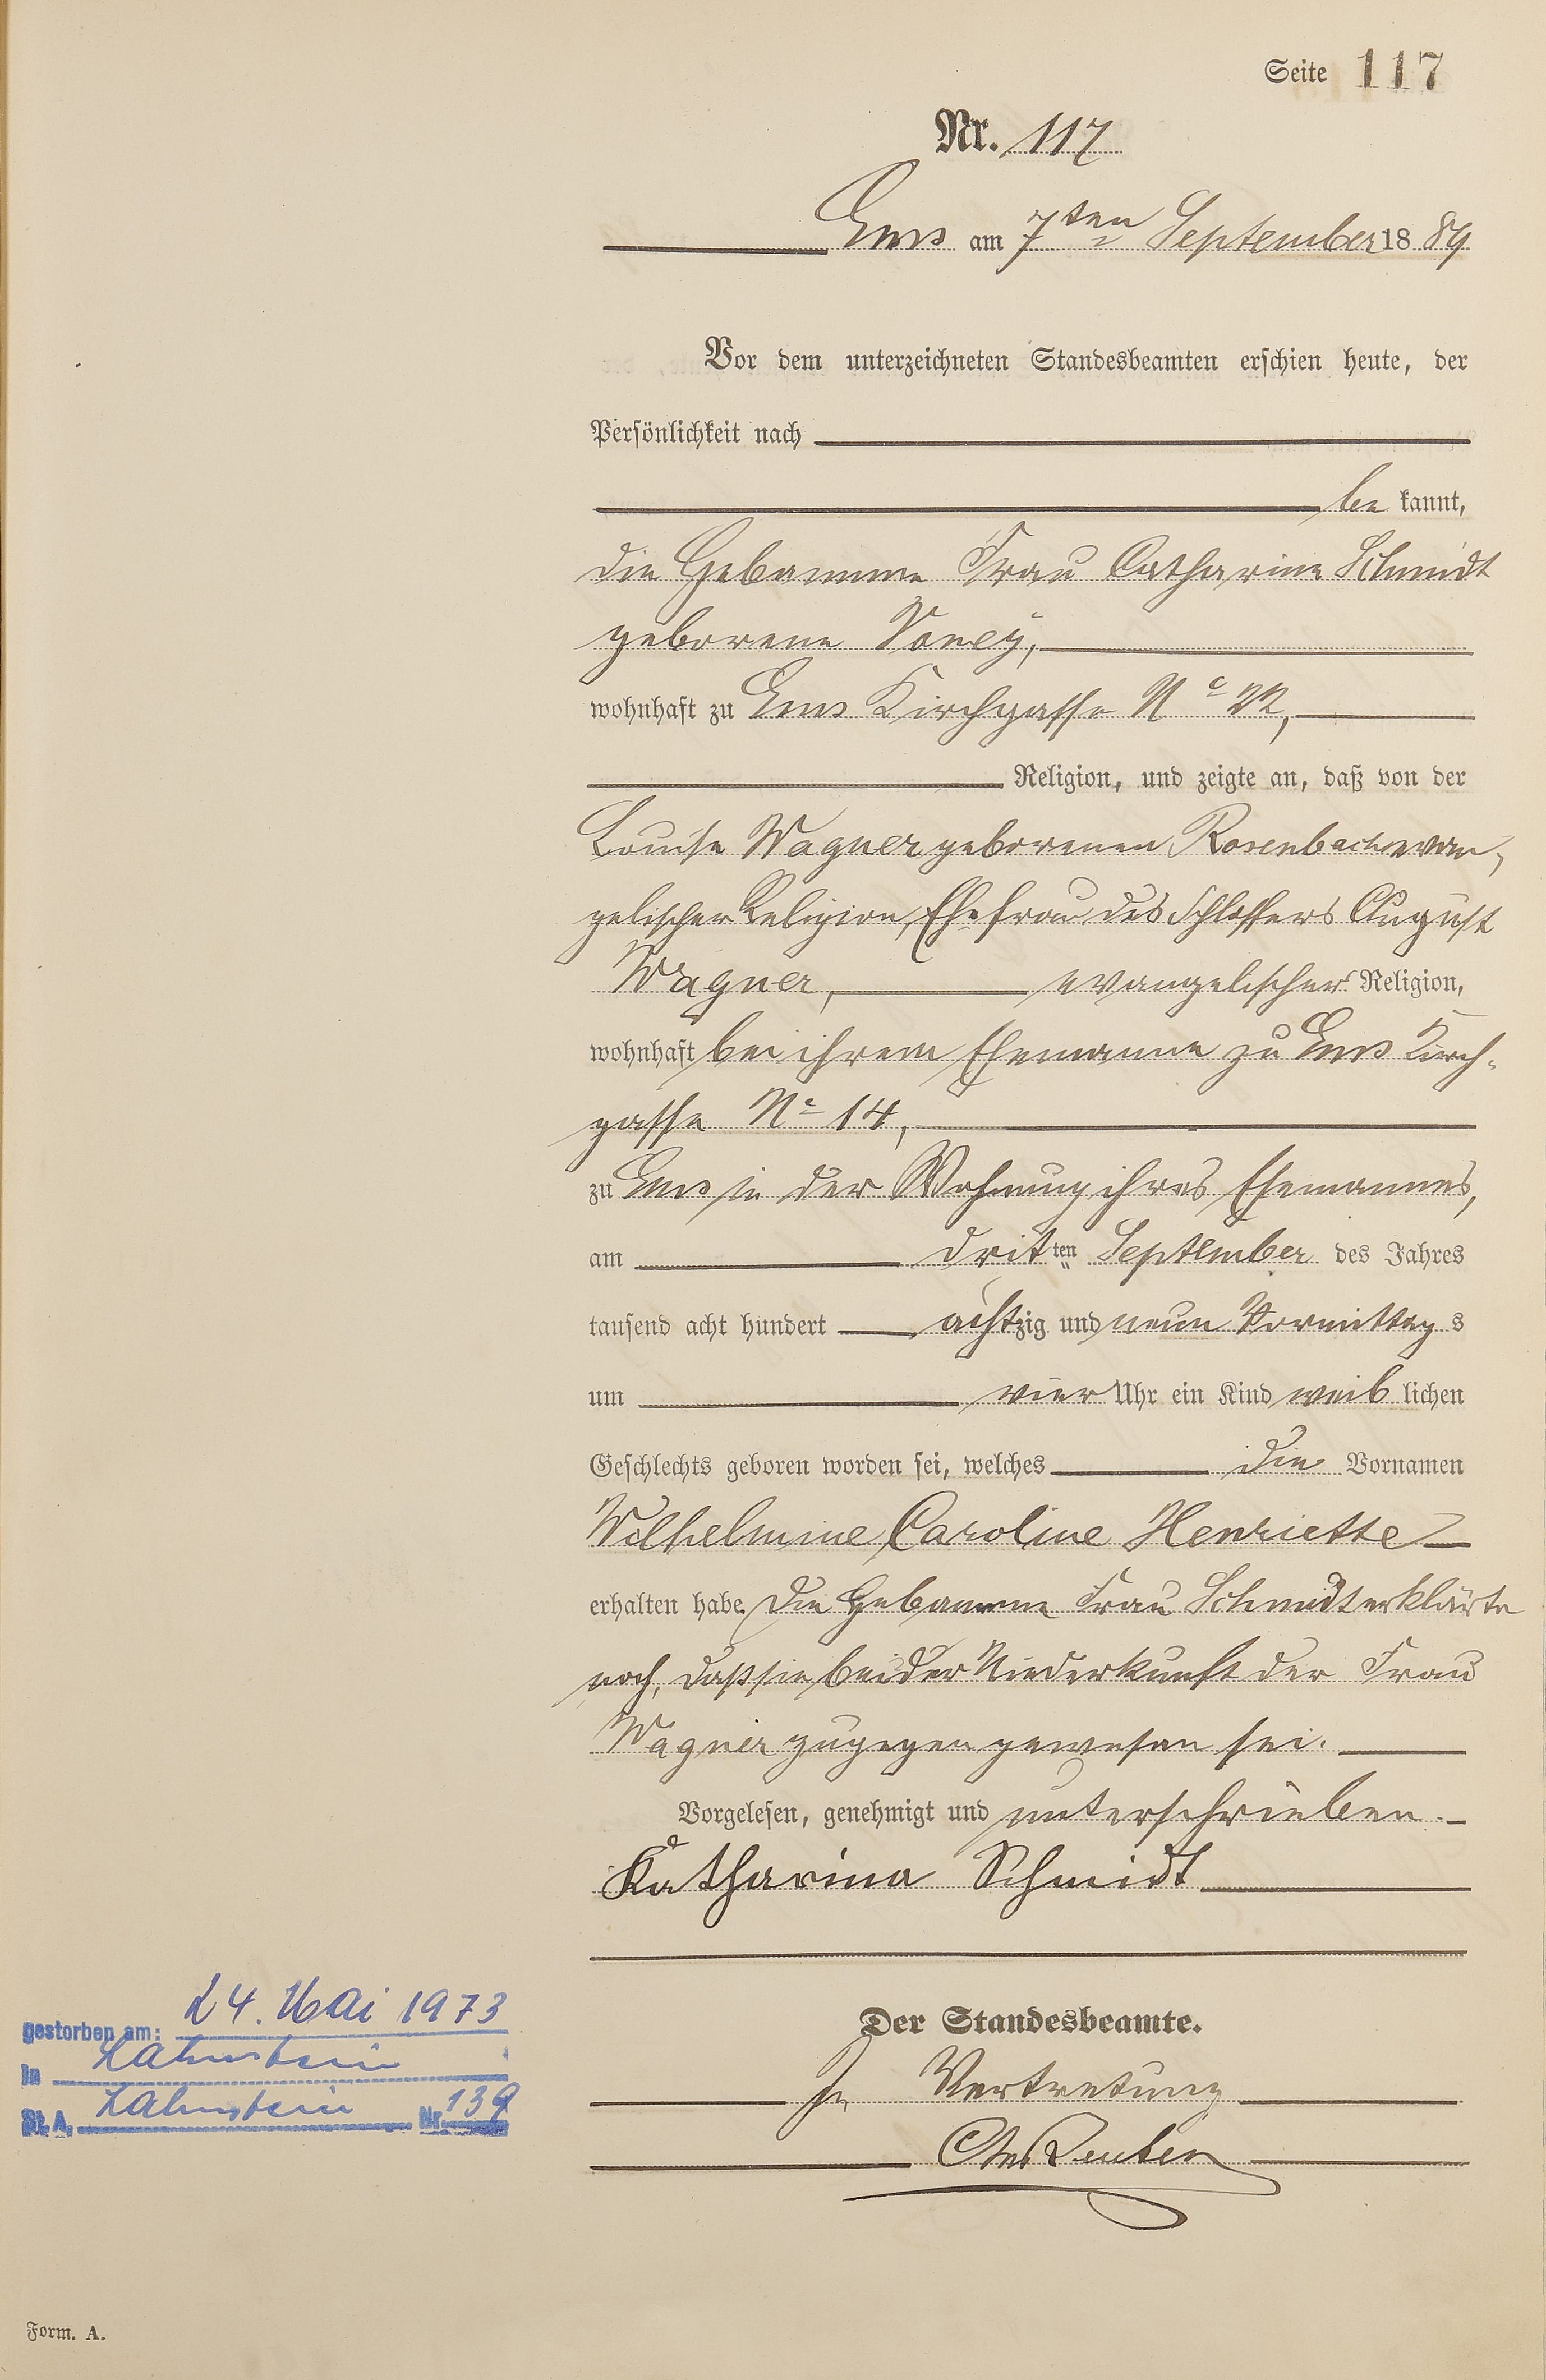 Seite 117
Nr. 117
Ems am 7ten September 1889
Vor dem unterzeichneten Standesbeamten erschien heute, der
Persönlichkeit nach
be kannt,
die Hebamme Frau Catharine Schmidt
geborene
wohnhaft zu Ems Kirchgasse No 22,
Religion, und zeigte an, daß von der
Louise Wagner geborenen Rosenbach evan-
gelischer Religion, Ehefrau des Schlossers August
Wagner, evangelischer Religion,
wohnhaft bei ihrem Ehemanne zu Ems Kirch-
gasse No 14,
zu Ems in der Wohnung ihres Ehemannes,
am dritten September des Jahres
tausend acht hundert achtzig und neun Vormittags
um vier Uhr ein Kind weiblichen
Geschlechts geboren worden sei, welches die Vornamen
Wilhelmine Caroline Henriette
erhalten habe. Die Hebamme Frau Schmidt erklärte
noch, daß sie bei der Niederkunft der Frau
Wagner zugegen gewesen sei.
Vorgelesen, genehmigt und unterschrieben.
Katharina Schmidt
Der Standesbeamte.
In Vertretung
gestorben am: 24. Mai 1973
in Lahnstein
St. A. Lahnstein Nr. 139
Form. A.